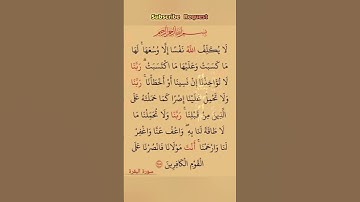 Subscribe Request
بسم الله الرحمن الرحيم
لَا يُكَلِّفُ اللَّهُ نَفْسًا إِلَّا وُسْعَهَا ۚ لَهَا
مَا كَسَبَتْ وَعَلَيْهَا مَا اكْتَسَبَتْ ۗ رَبَّنَا
لَا تُؤَاخِذْنَا إِنْ نَسِينَا أَوْ أَخْطَأْنَا ۚ رَبَّنَا
وَلَا تَحْمِلْ عَلَيْنَا إِصْرًا كَمَا حَمَلْتَهُ عَلَى
الَّذِينَ مِنْ قَبْلِنَا ۚ رَبَّنَا وَلَا تُحَمِّلْنَا مَا
لَا طَاقَةَ لَنَا بِهِ ۖ وَاعْفُ عَنَّا وَاغْفِرْ
لَنَا وَارْحَمْنَا ۚ أَنْتَ مَوْلَانَا فَانْصُرْنَا عَلَى
الْقَوْمِ الْكَافِرِينَ
سورة البقرة